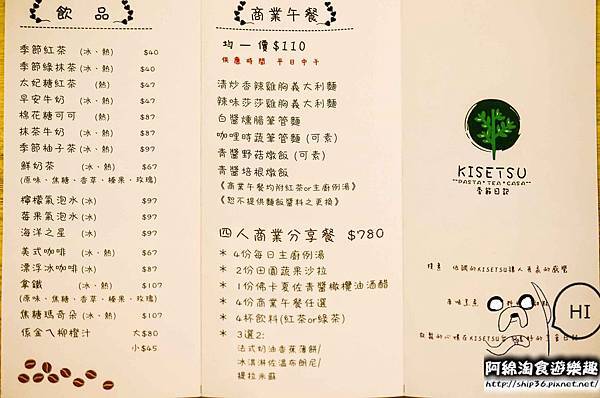 飲品
季節紅茶 (冰、熱) $40
季節綠抹茶(冰、熱) $40
太妃糖紅茶 (熱) $67
早安牛奶 (冰、熱) $67
棉花糖可可 (熱) $87
抹茶牛奶 (冰、熱) $87
季節柚子茶(冰、熱) $97
鮮奶茶 (冰、熱) $67
(原味、焦糖、香草、榛果、玫瑰)
檸檬氣泡水(冰) $97
莓果氣泡水(冰) $97
海洋之星 (冰) $97
美式咖啡 (冰、熱) $67
漂浮冰咖啡(冰) $87
拿鐵 (冰、熱) $107
(原味、焦糖、香草、榛果、玫瑰)
焦糖瑪奇朵 (冰、熱) $107
係金ㄟ柳橙汁 大$80
小$45
商業午餐
均一價$110
供應時間 平日中午
清炒香辣雞胸義大利麵
辣味莎莎雞胸義大利麵
白醬燻腸筆管麵
咖哩時蔬筆管麵(可素)
青醬野菇燉飯(可素)
青醬培根燉飯
《商業午餐均附紅茶or主廚例湯》
《恕不提供麵飯醬料之更換》
四人商業分享餐 $780
* 4份每日主廚例湯
* 2份田園蔬果沙拉
* 1份佛卡夏佐青醬橄欖油酒醋
* 4份商業午餐任選
* 4杯飲料(紅茶or綠茶)
* 3選2:
法式奶油香蕉薄餅/
冰淇淋佐溫布朗尼/
提拉米蘇
KISETSU
PASTA*TEA*CASA
季節日記
HI
阿綿淘食遊樂趣
http://ship36.pixnet.net/blog